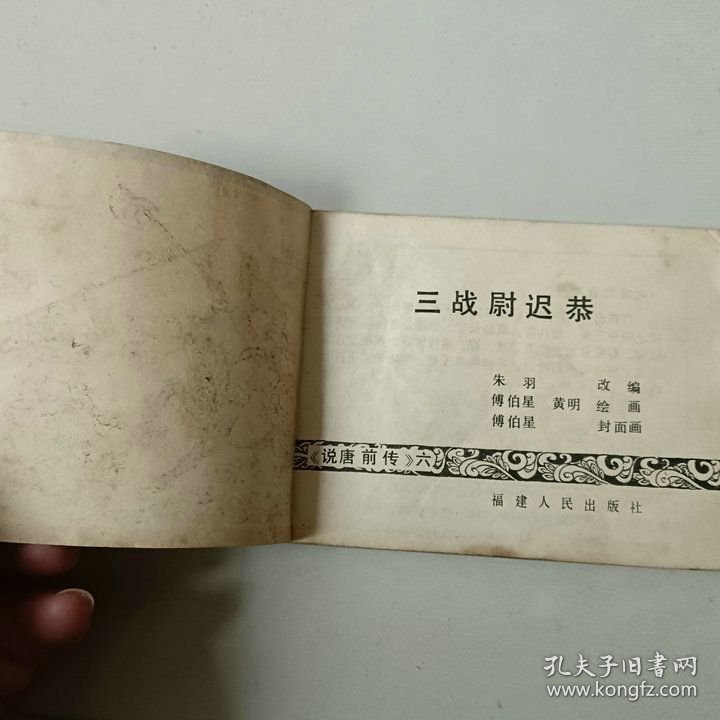 三战尉迟恭
朱羽 改编
傅伯星 黄明 绘画
傅伯星 封面画
《说唐前传》六
福建人民出版社
孔夫子旧书网
www.kongfz.com